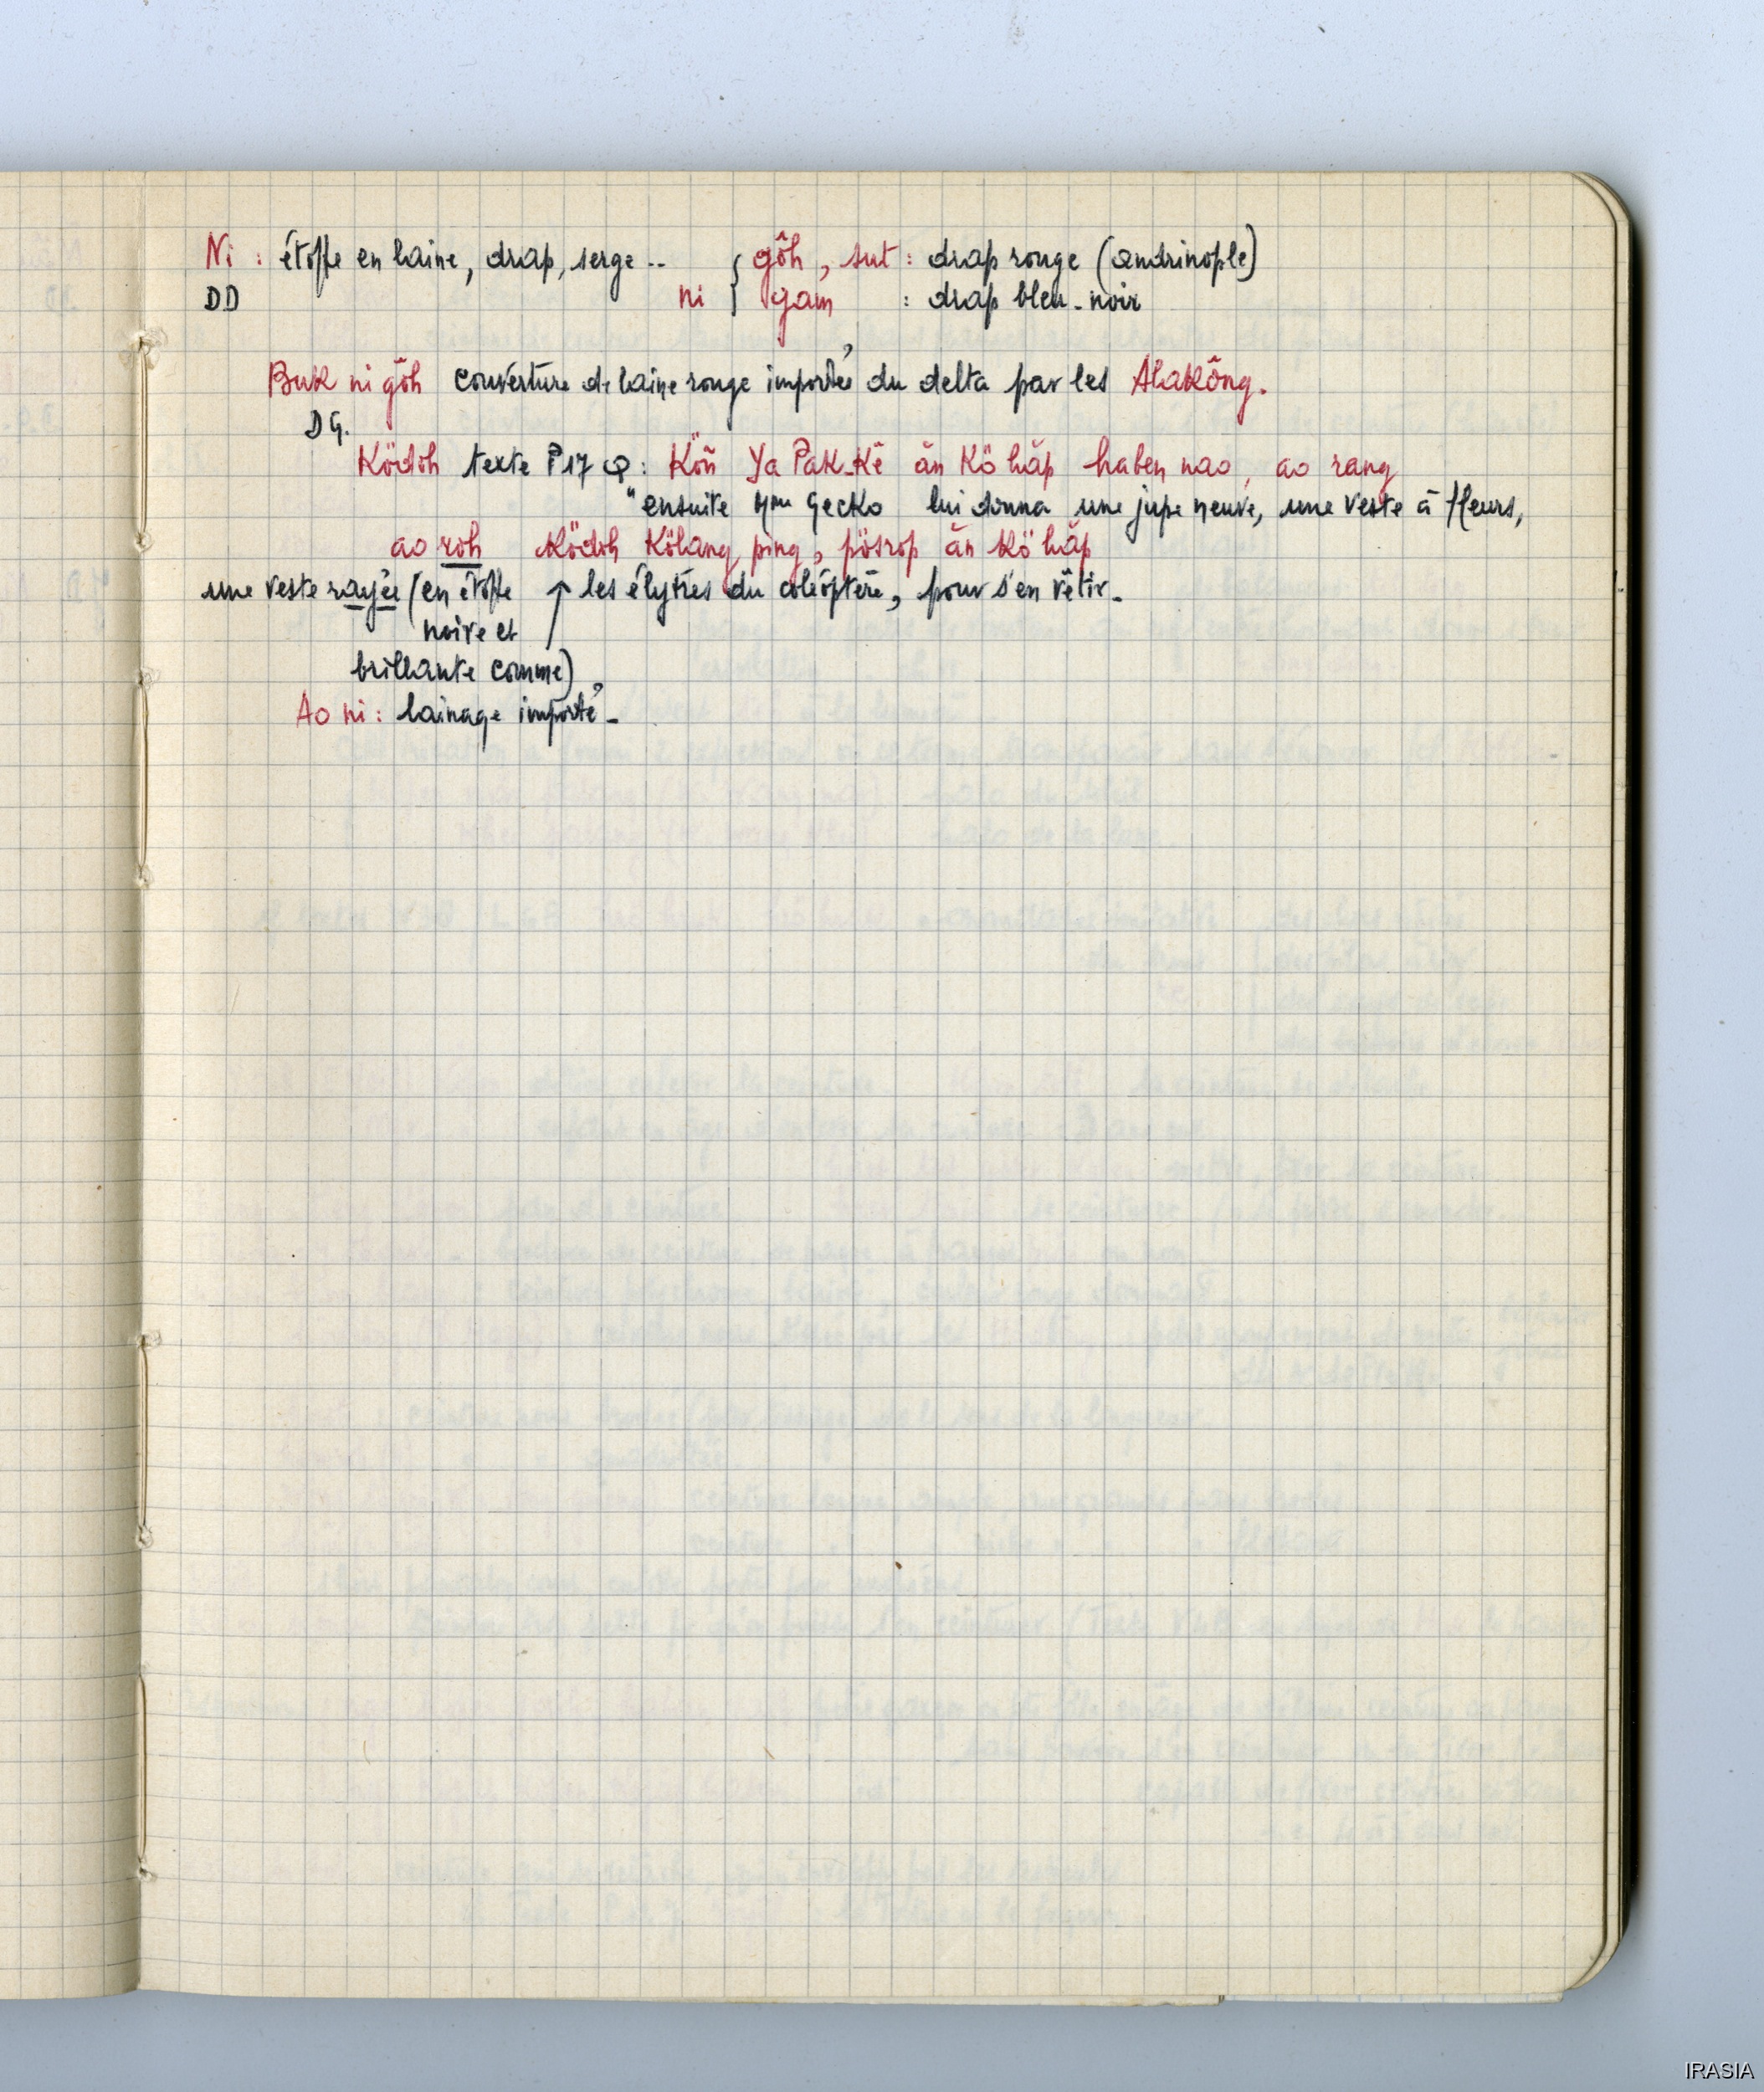 Ni : étoffe en laine, drap, serge .. { gôh, sut : drap rouge (andrinople)
DD ni { gam : drap bleu-noir
Buk ni gôh couverture de laine rouge importée du delta par les Alakông.
DG.
Ködoh texte P17 Q : Köñ Ya Pak-Kê ăn Kö hăp haben nao, ao rang
"ensuite Mme Gecko lui donna une jupe neuve, une veste à fleurs,
ao roh Ködoh Kölang ping, pösrop ăn Kö hăp
une veste rayée (en étoffe ↑ les élytres du coléoptère, pour s'en vêtir-
noire et
brillante comme)
Ao ni : lainage importé-
IRASIA